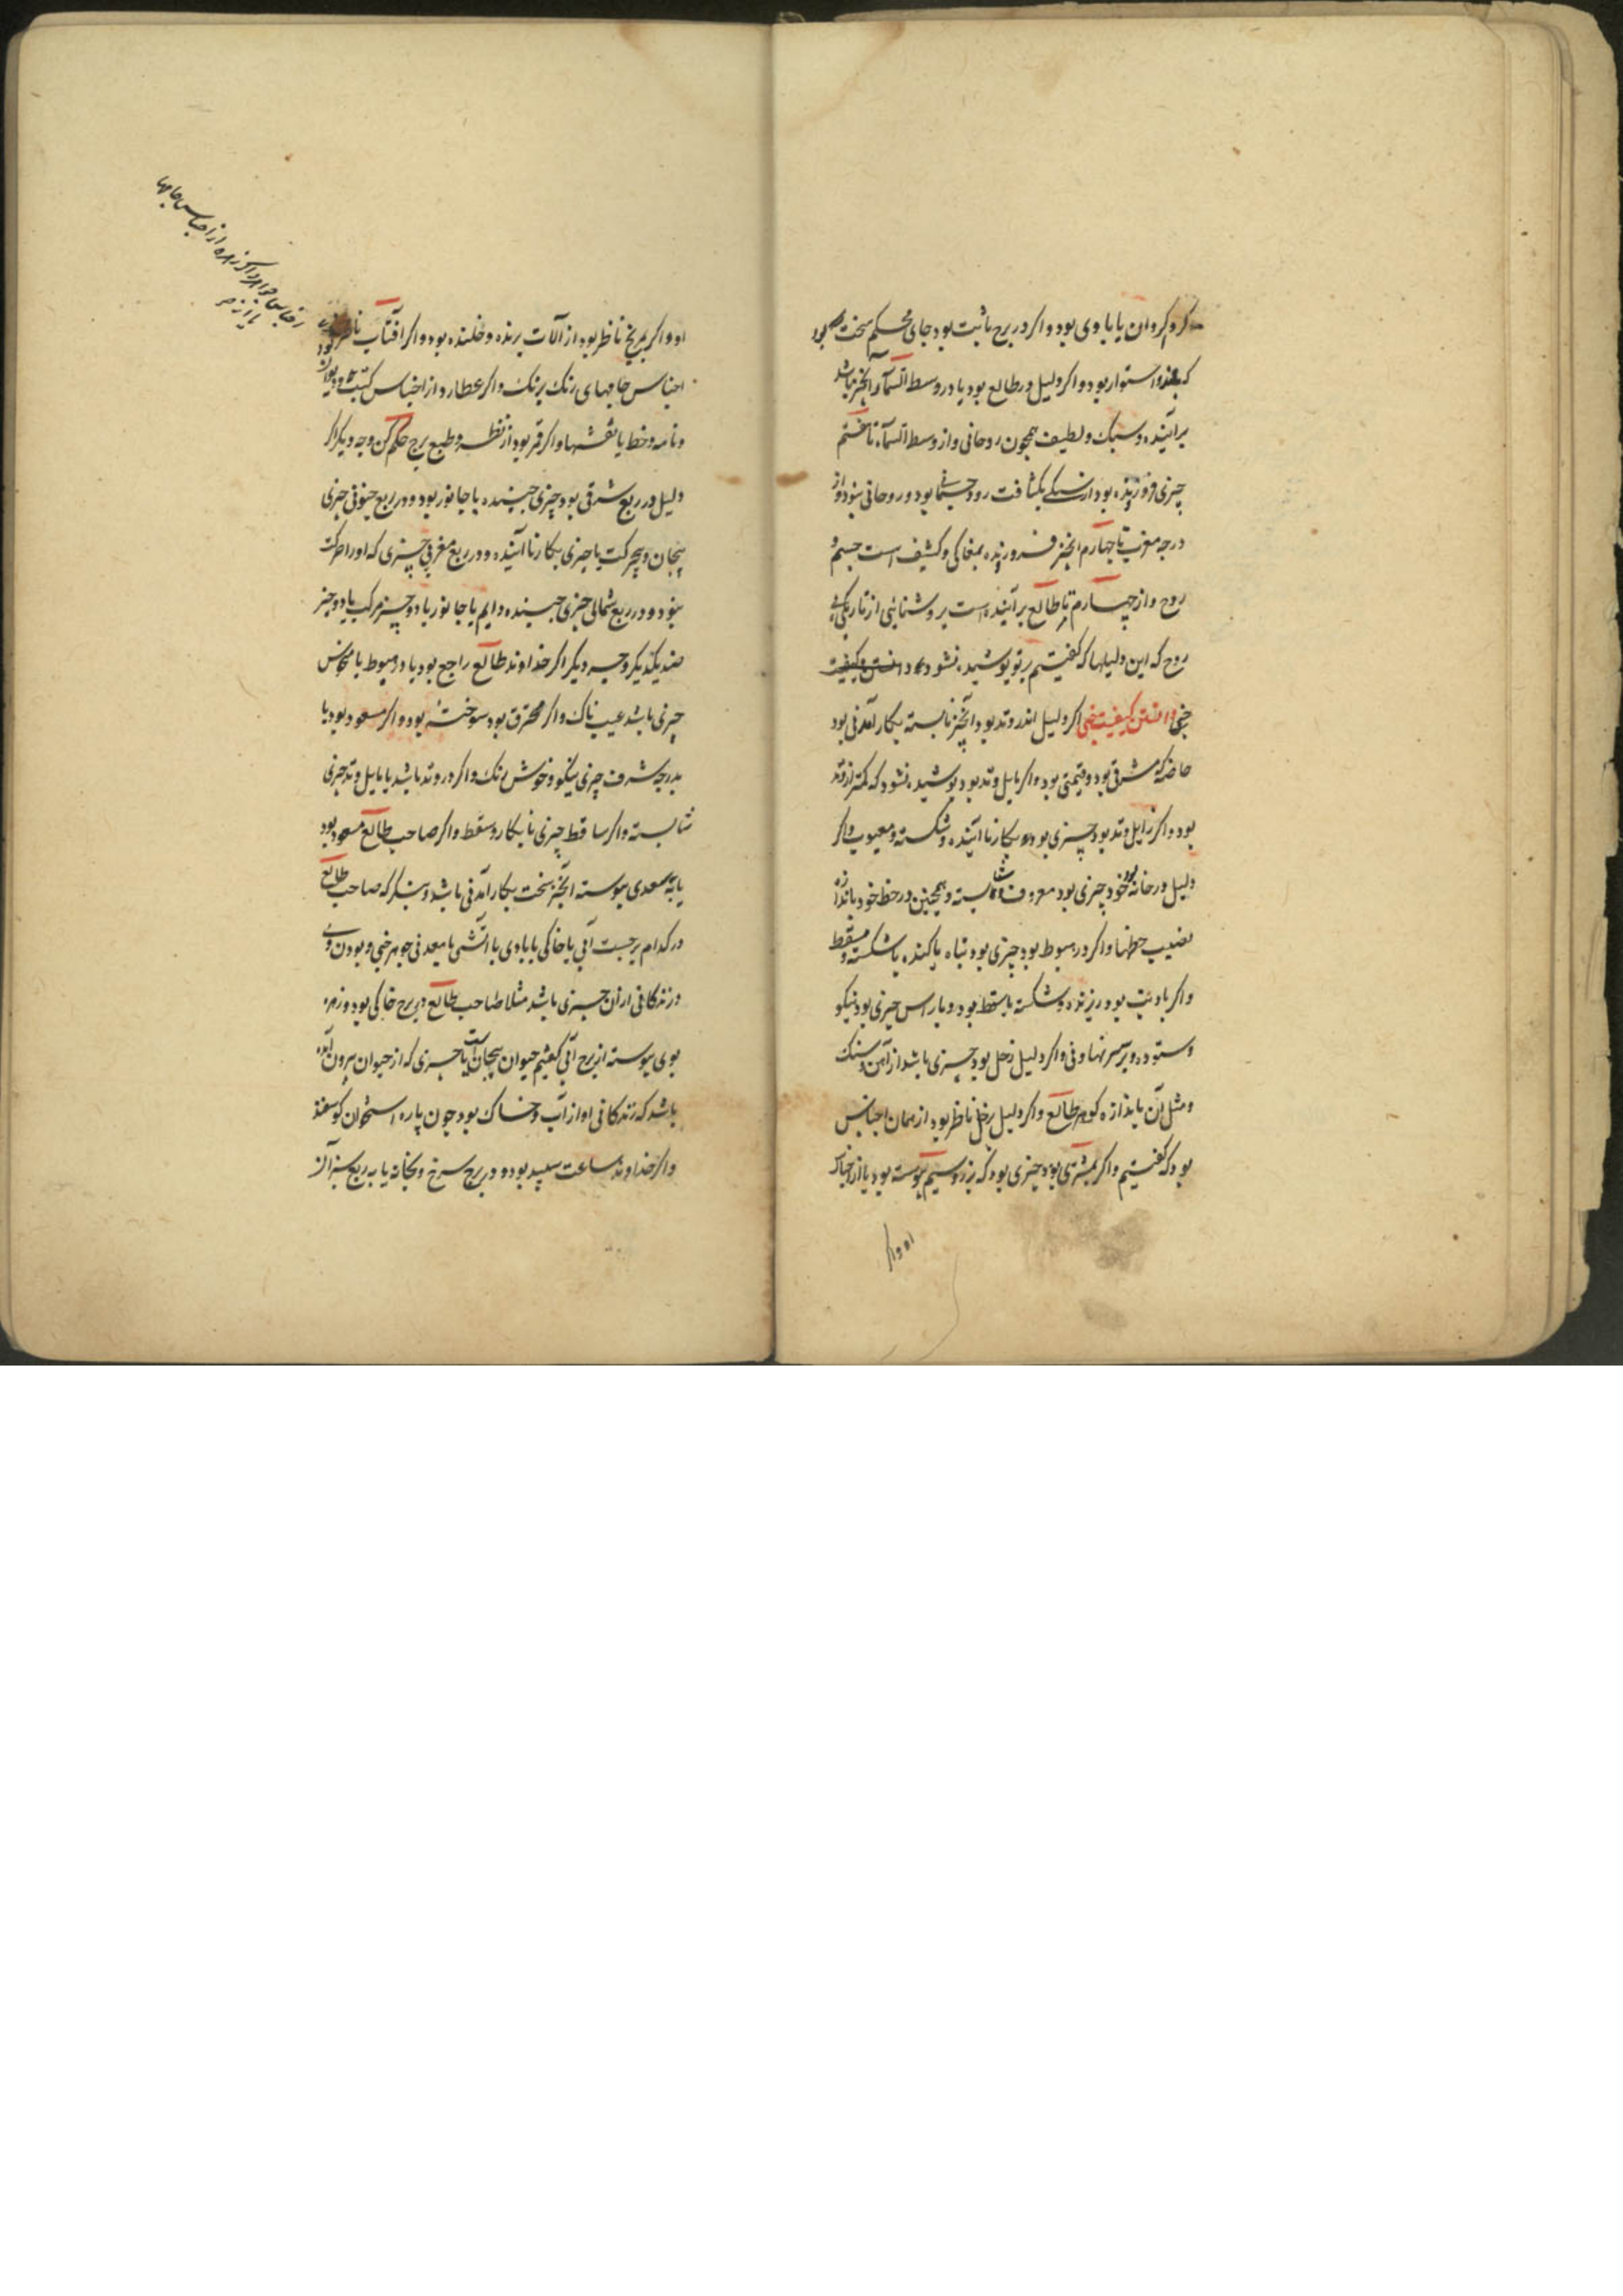 کرد کردان یا با وی بود و اکر در برج ثابت بود جای محکم سخت بود
که بلند و استوار بود و اکر دلیل در طالع بود یا در وسط السمآء آنچیز باشد
برآینده و سبک و لطیف همچون روحانی و از وسط السمآء تا هفتم
چیزی فرورونده بود از سبکی بکثافت رود جسمانی بود و روحانی نبود و از
درجه مغرب تا چهارم آنچیز فرورونده بمغاکی و کثیف است جسم و
روح و از چهارم تا طالع برآینده است بروشنائی از تاریکی
روح که این دلیلها که کفتیم بر تو پوشیده نشود دانستن کیفیت
خبی دانستن کیفیت خبی اکر دلیل اندر وتد بود آنچیز بایسته بکار آمدنی بود
خاصه که مشرقی بود و قیمتی بود و اکر مایل وتد بود پوشیده نشود که کمتر از وتد
بود و اکر زایل وتد بود چیزی بود بکار ناآینده و شکسته و معیوب و اکر
دلیل در خانه خود بود چیزی بود معروف شایسته و همچنین در حظ خود باندازه
نصیب حظها و اکر در هبوط بود چیزی بود تباه یا کنده یا شکسته و مسقط
و اکر با ذنب بود ریزنده و شکسته یا سقط بود و با راس چیزی بود نیکو
و ستوده و بر سر نهادنی و اکر دلیل زحل بود چیزی باشد از آهن و سنک
و مثل آن باندازه کوهر طالع و اکر دلیل زحل ناظر بود از همان اجناس
بود که کفتیم و اکر بمشتری بود چیزی بود که بزر و سیم پیوسته بود یا از اجناس
او و اکر
او و اکر بمریخ ناظر بود از آلات برنده و خلنده بود و اکر آفتاب ناظر بود
اجناس جامهای رنک برنک و اکر عطارد از اجناس کتب و دیوان بود
و نامه و خط یا نقشها و اکر قمر بود از نظر و طبع برج حکم کن وجه دیکر اکر
دلیل در ربع شرقی بود چیزی جنبنده یا جانور بود و در ربع جنوبی چیزی
بیجان و بیحرکت یا چیزی بکار ناآینده و در ربع مغربی چیزی که او را حرکت
نبود و در ربع شمالی چیزی جنبنده دایم یا جانور یا دو چیز مرکب یا دو چیز
ضد یکدیکر وجه دیکر اکر خداوند طالع راجع بود یا در هبوط یا منحوس
چیزی باشد عیب ناک و اکر محترق بود سوخته بود و اکر مسعود بود یا
بدرجه شرف چیزی نیکو و خوش رنک و اکر در وتد باشد یا مایل وتد چیزی
شایسته و اکر ساقط چیزی نابکار و سقط و اکر صاحب طالع مسعود بود
یا بسعدی پیوسته آنچیز سخت بکار آمدنی باشد و بنکر که صاحب طالع
در کدام برجست آبی یا خاکی یا بادی یا آتشی یا معدنی جوهر خبی و بودن وی
و زندکانی از آن چیزی باشد مثلا صاحب طالع در برج خاکی بود و زهره
بوی پیوسته از برج آبی کفتیم حیوان بیجان است یا چیزی که از حیوان بیرون آمده
باشد که زندکانی او از آب و خاک بود چون پاره استخوان کوسفند
و اکر خداوند ساعت سپید بود و در برج سرخ و بخانه یا به ربع سبز آنرا
اجناس جواهر و اکر زهره از اجناس جامها